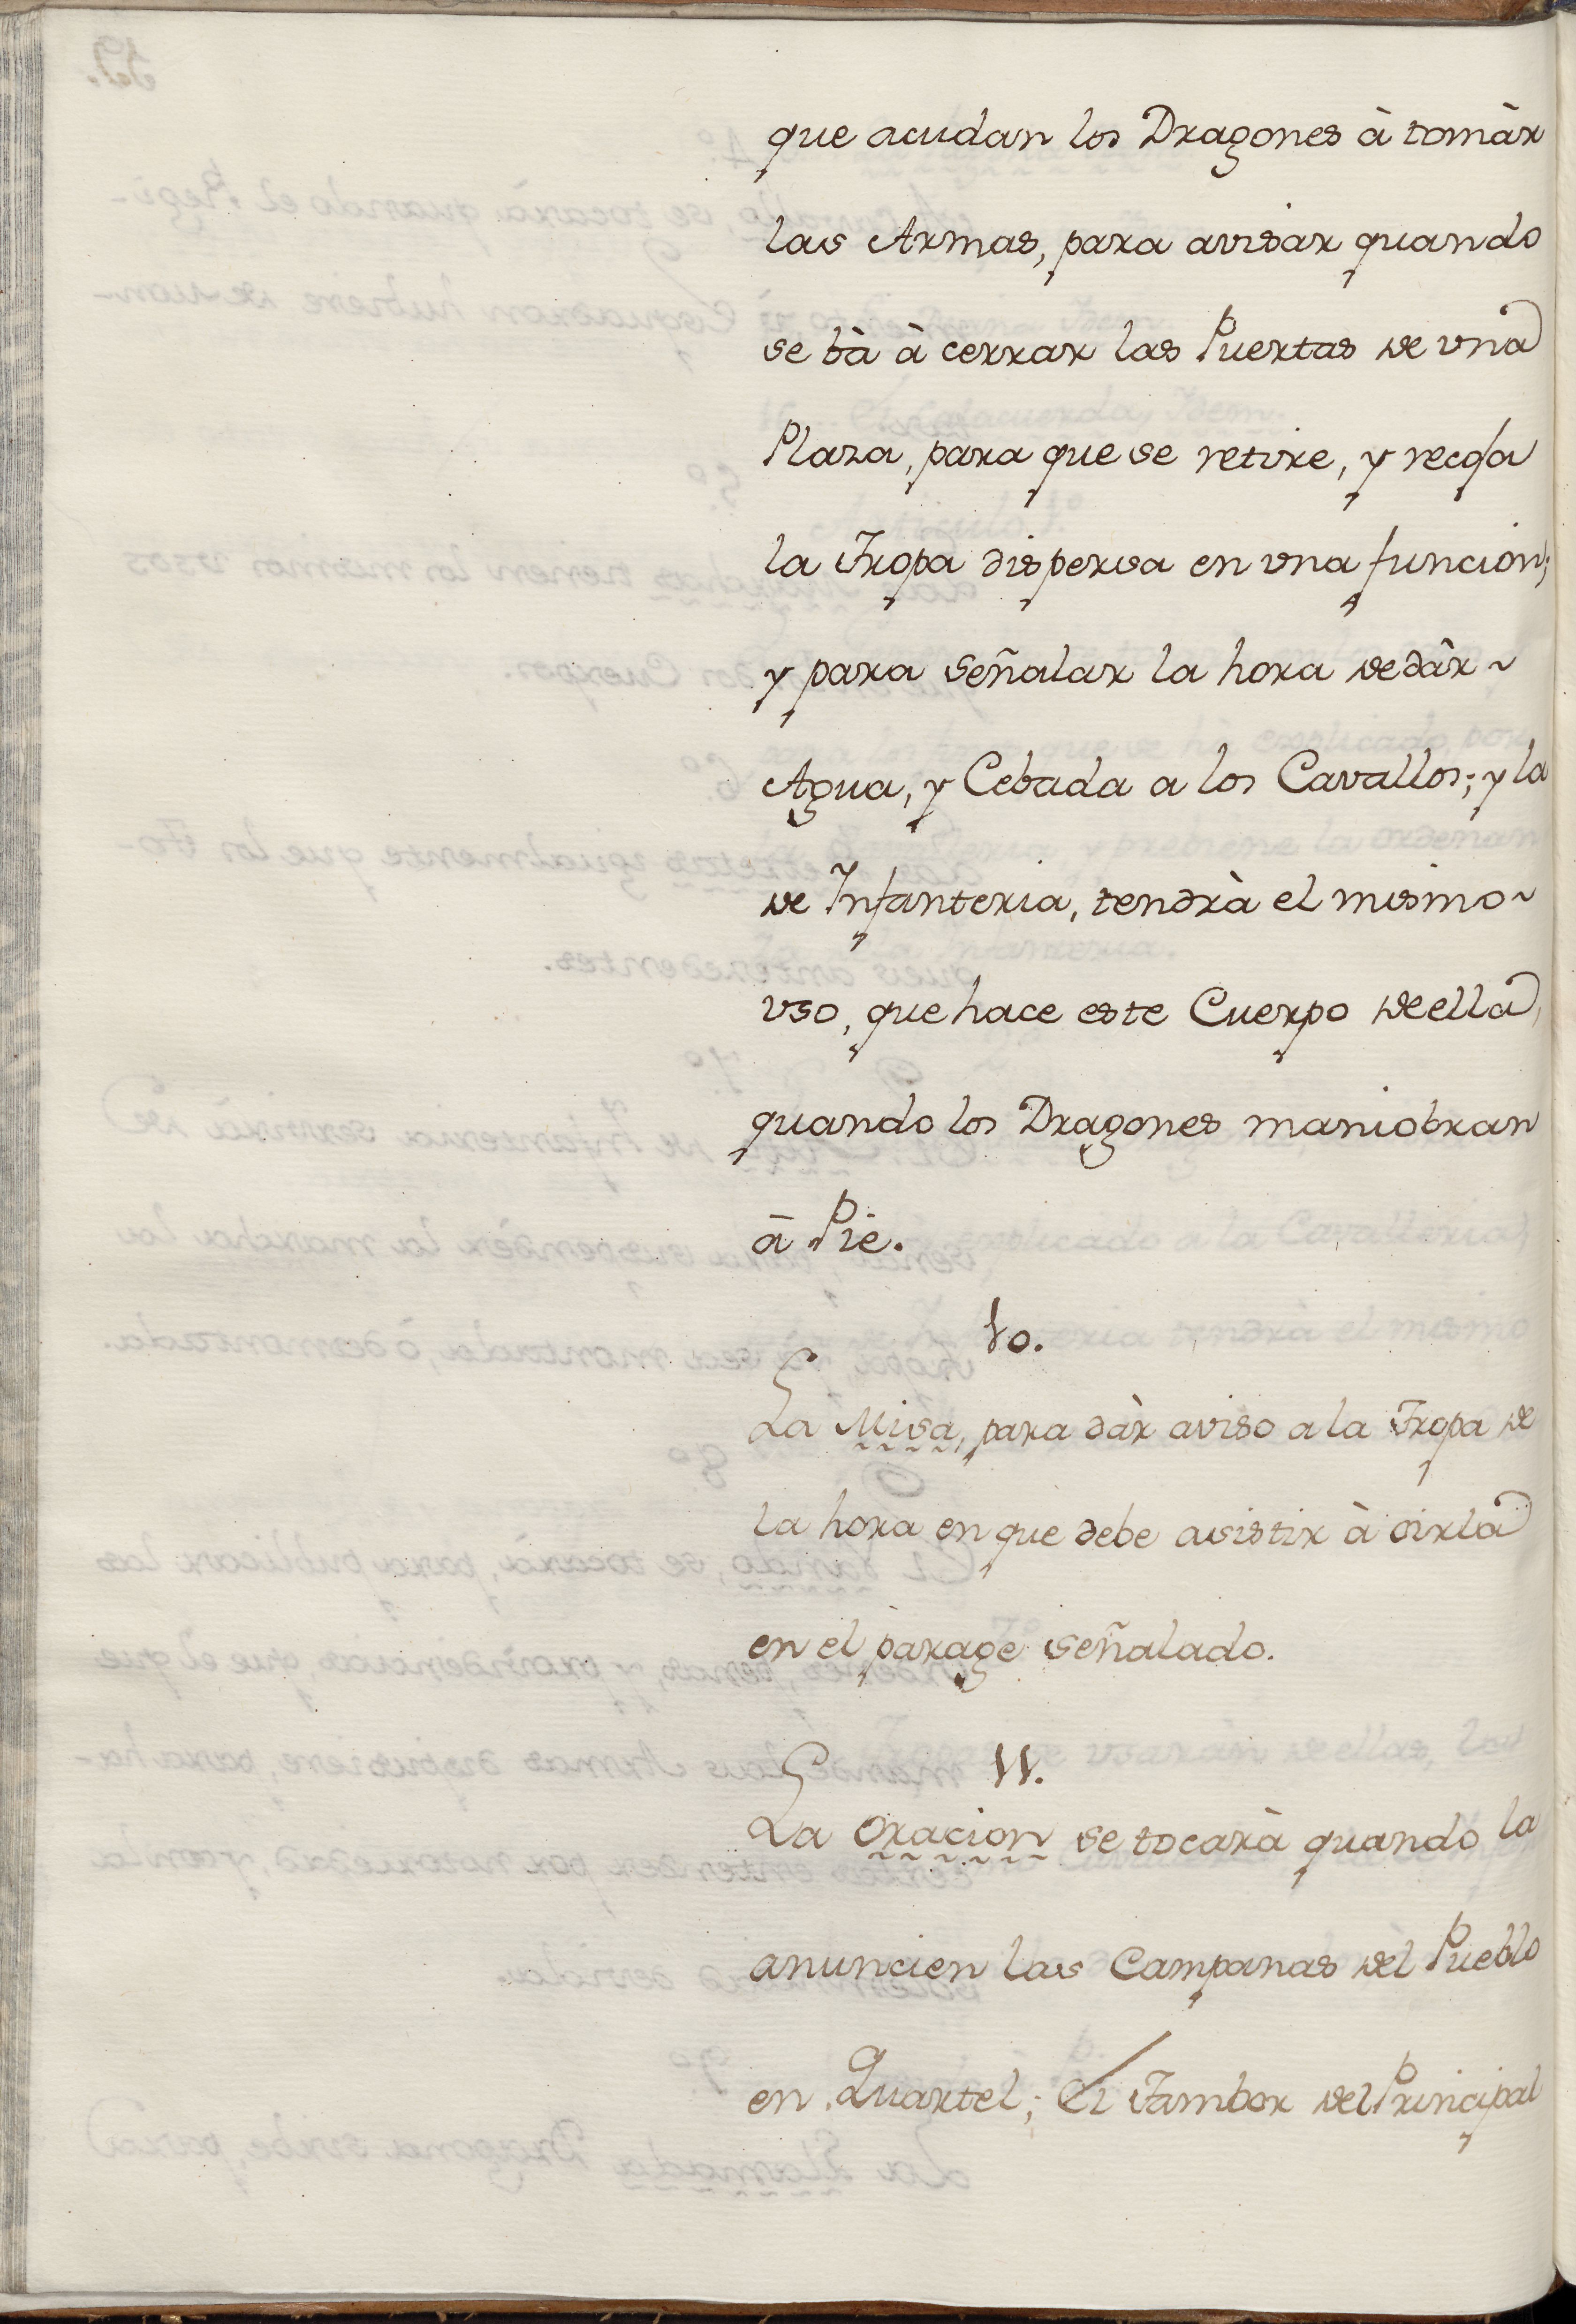 que acudan los Dragones à tomàr
las Armas, para avisar quando
se bà à cerrar las Puertas de vna
Plaza, para que se retire, y recoja
la Tropa dispersa en vna funcion;
y para señalar la hora de dàr ~
Agua, y Cebada a los Cavallos; y la
de Infanteria, tendrà el mismo ~
vso, que hace este Cuerpo de ella,
quando los Dragones maniobran
à Pie.
10.
La Misa, para dàr aviso a la Tropa de
la hora en que debe asistir à oirla
en el parage señalado.
11.
La Oracion se tocarà quando la
anuncien las Campanas del Pueblo
en Quartel; El Tambor del Principal